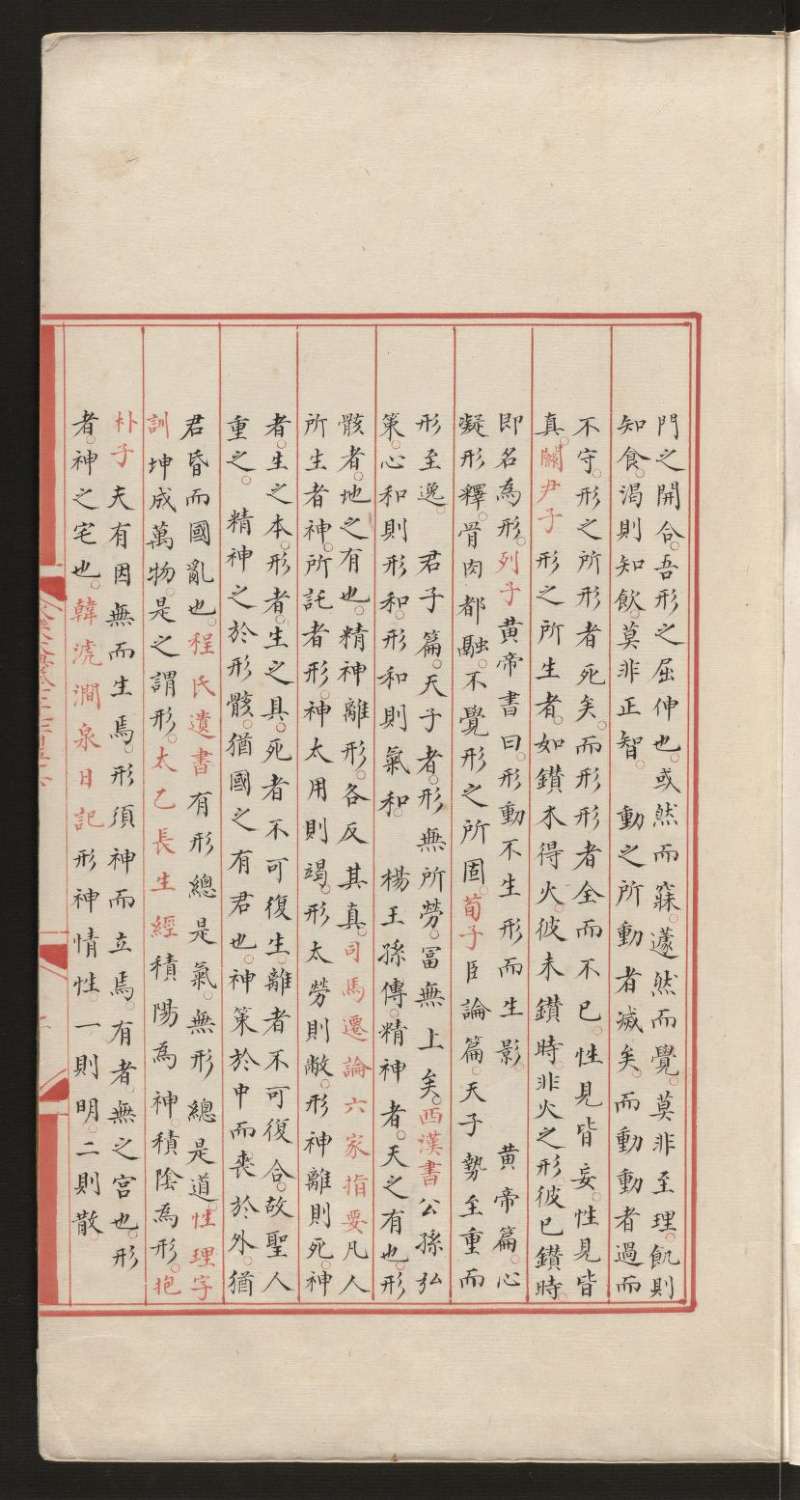 門之開合。吾形之屈伸也。或然而寐。蘧然而覺。莫非至理。飢則
知食。渴則知飲。莫非正智。 動之所動者滅矣。而動動者過而
不守。形之所形者死矣。而形形者全而不已。性見皆妄。性見皆
真。關尹子 形之所生者。如鑽木得火。彼未鑽時。非火之形。彼已鑽時。
即名為形。列子 黃帝書曰。形動不生形而生影。 黃帝篇。心
凝形釋。骨肉都融。不覺形之所固。荀子 臣論篇。天子勢至重而
形至逸。 君子篇。天子者。形無所勞。冨無上矣。西漢書 公孫弘
策。心和則形和。形和則氣和。 楊王孫傳。精神者。天之有也。形
骸者。地之有也。精神離形。各反其真。司馬遷論六家指要 凡人
所生者神。所託者形。神太用則竭。形太勞則敝。形神離則死。神
者。生之本。形者。生之具。死者不可復生。離者不可復合。故聖人
重之。 精神之於形骸。猶國之有君也。神策於中而喪於外。猶
君昏而國亂也。程氏遺書 有形總是氣。無形總是道。性理字
訓 坤成萬物。是之謂形。太乙長生經 積陽為神。積陰為形。抱
朴子 夫有因無而生焉。形須神而立焉。有者。無之宮也。形
者。神之宅也。韓淲澗泉日記 形神情性。一則明。二則散。